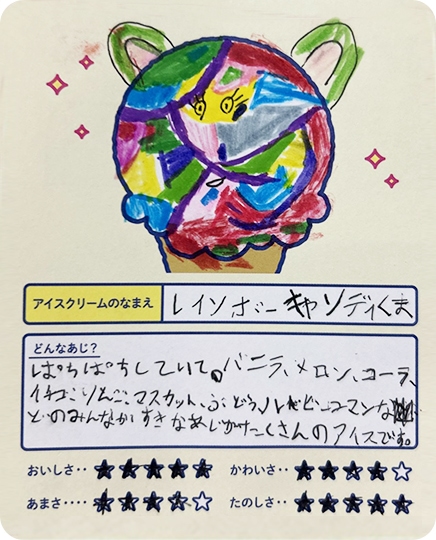 アイスクリームのなまえ レインボーキャンディくま
どんなあじ?
ぱちぱちしていて。バニラ、メロン、コーラ、
イチゴ、りんご、マスカット、ぶどう、
どのみんながすきなあじがたくさんのアイスです。
おいしさ‥ ★★★★★ かわいさ‥ ★★★★☆
あまさ‥‥ ★★★★☆ たのしさ‥ ★★★★★